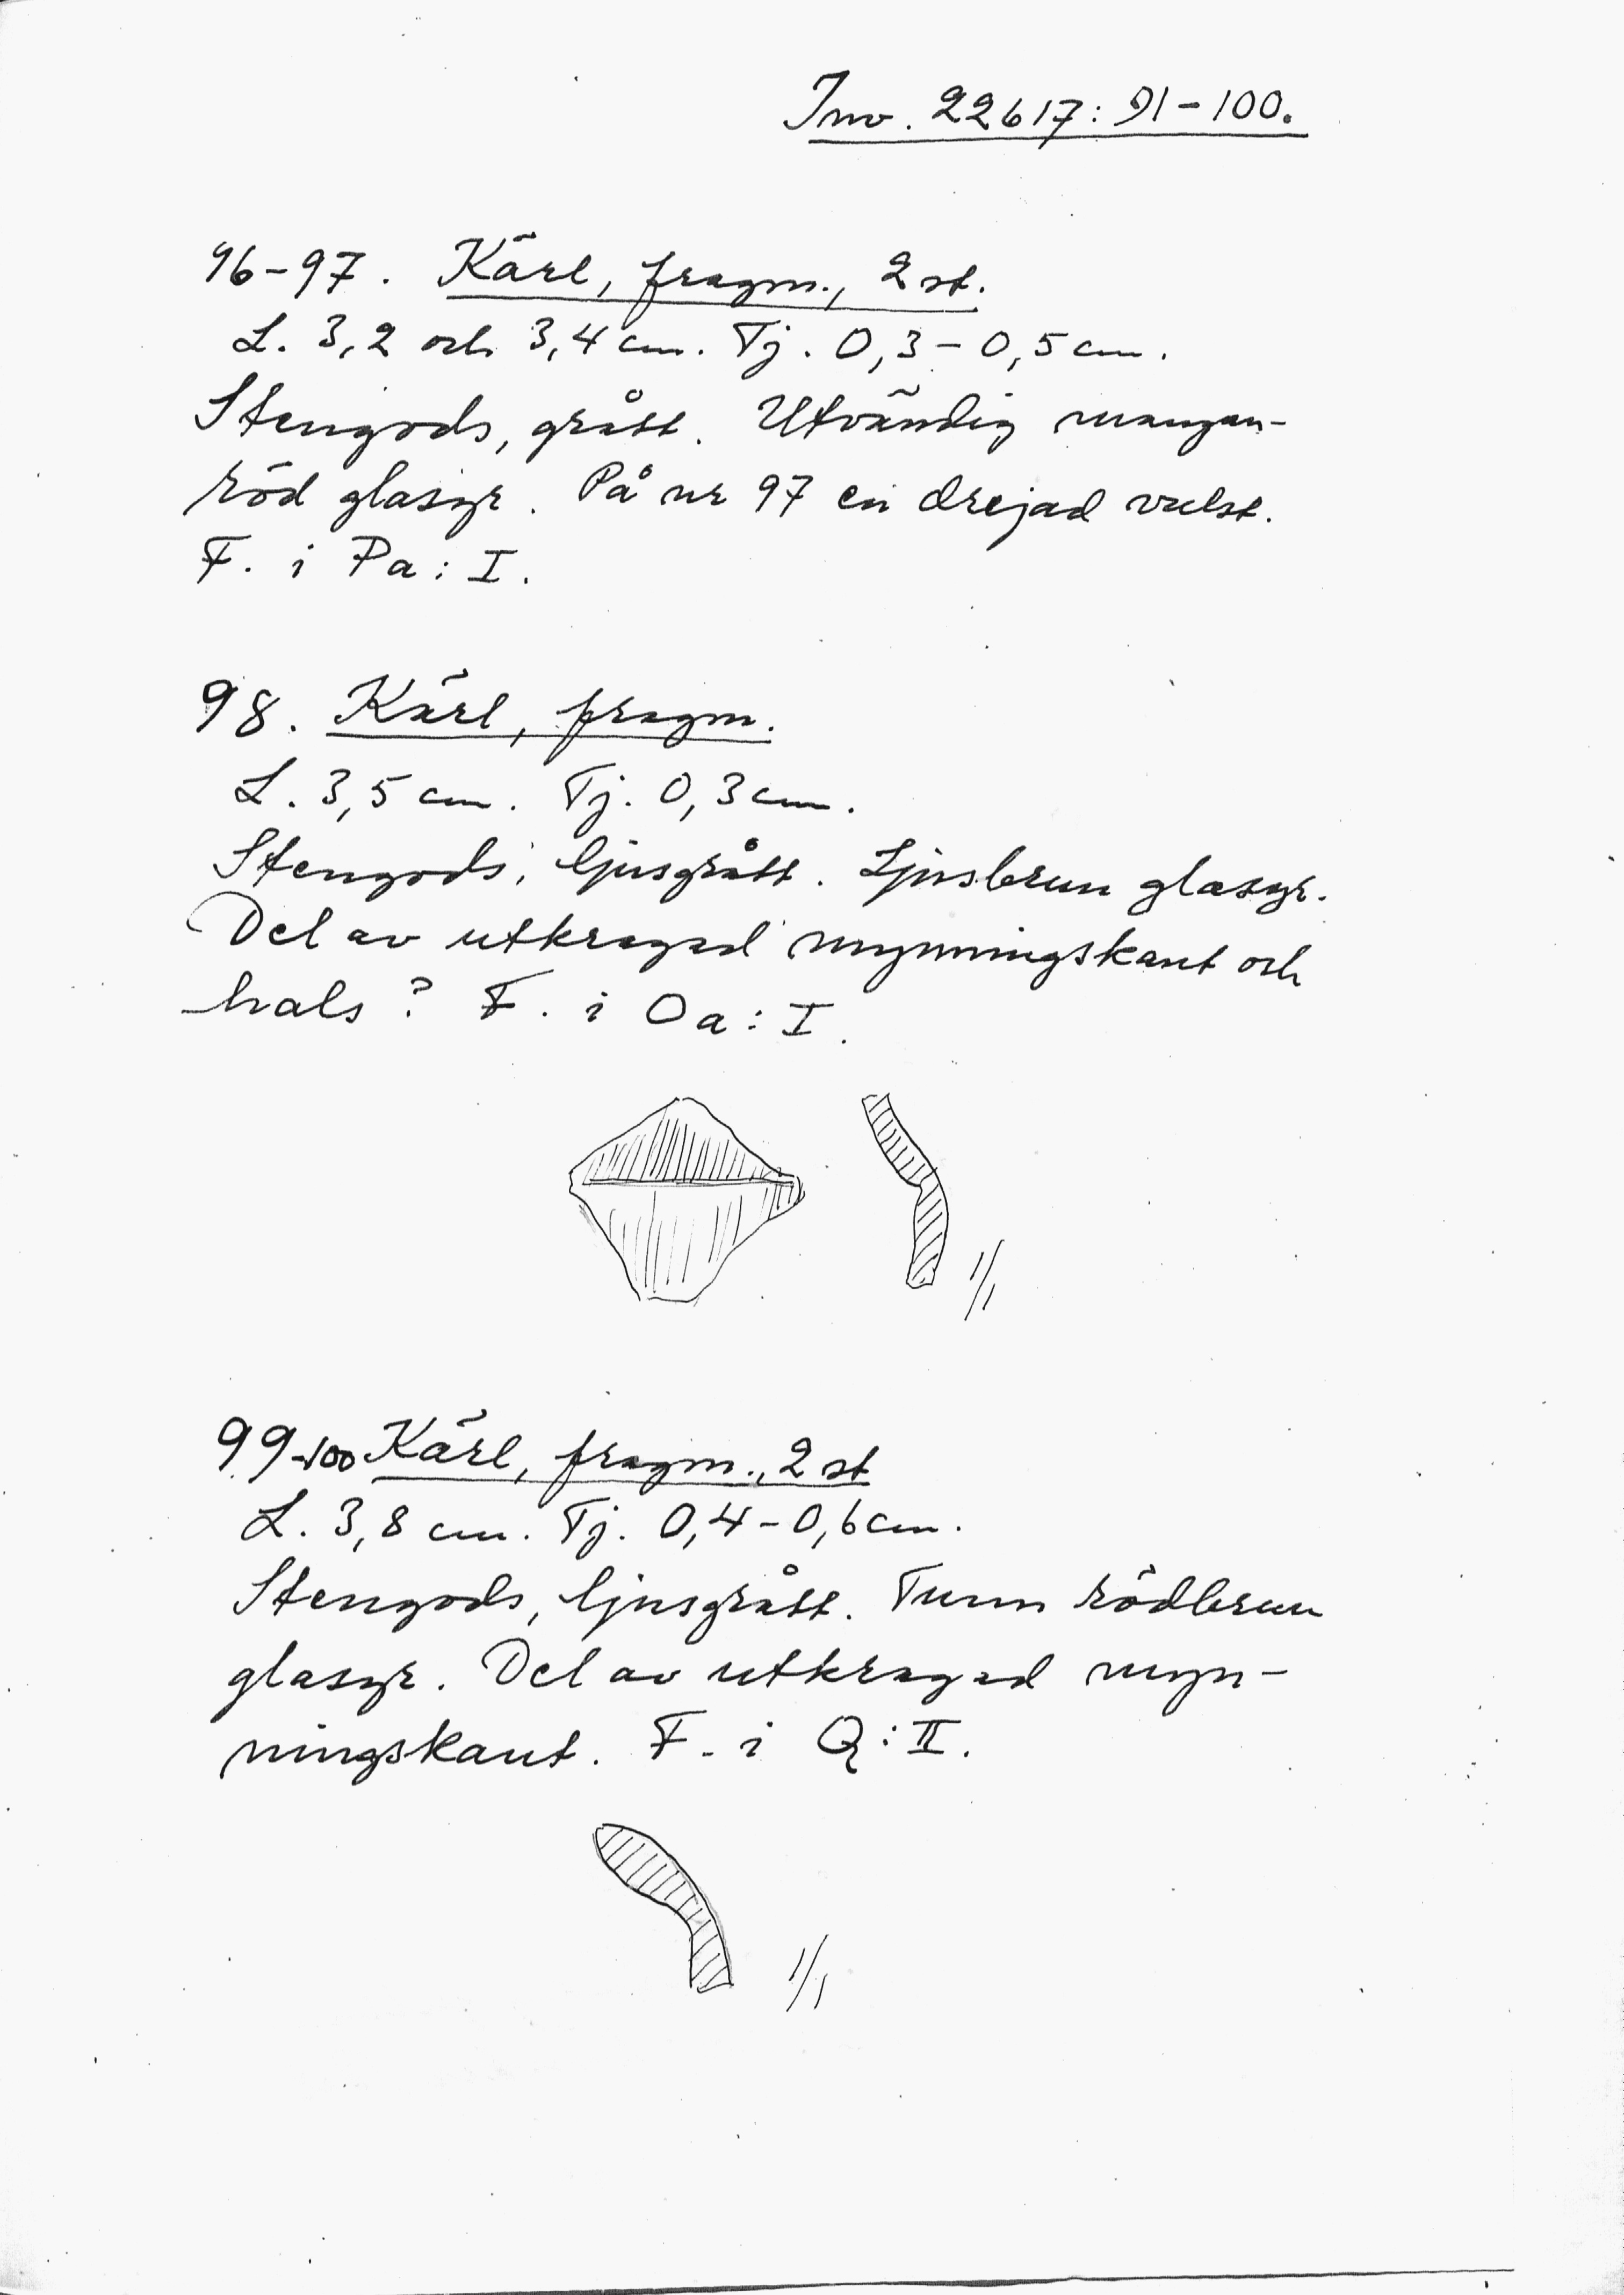 Inv. 22617: 91-100.
96-97. Kärl, fragm., 2 st.
L. 3,2 och 3,4 cm. Tj. 0,3-0,5 cm.
Stengods, grått. Utvändig mangan-
röd glasyr. På nr 97 en drejad vulst.
F. i Pa: I.
98. Kärl, fragm.
L. 3,5 cm. Tj. 0,3 cm.
Stengods, ljusgrått. Ljusbrun glasyr.
Del av utkragad mynningskant och
hals? F. i Oa: I.
1/1
99-100 Kärl, fragm., 2 st
L. 3,8 cm. Tj. 0,4-0,6 cm.
Stengods, ljusgrått. Tunn rödbrun
glasyr. Del av utkragad myn-
ningskant. F. i Q: II.
1/1